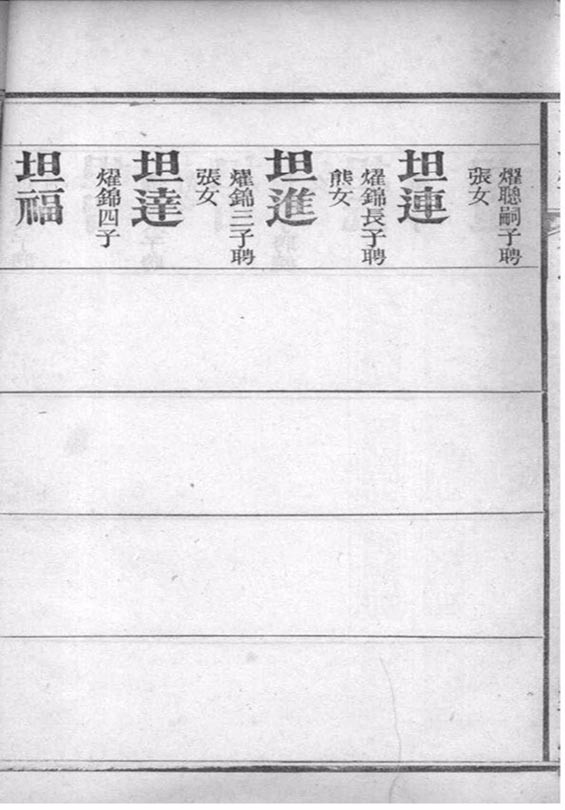 燿聰嗣子聘
張女
坦連
燿錦長子聘
熊女
坦進
燿錦三子聘
張女
坦達
燿錦四子
坦福